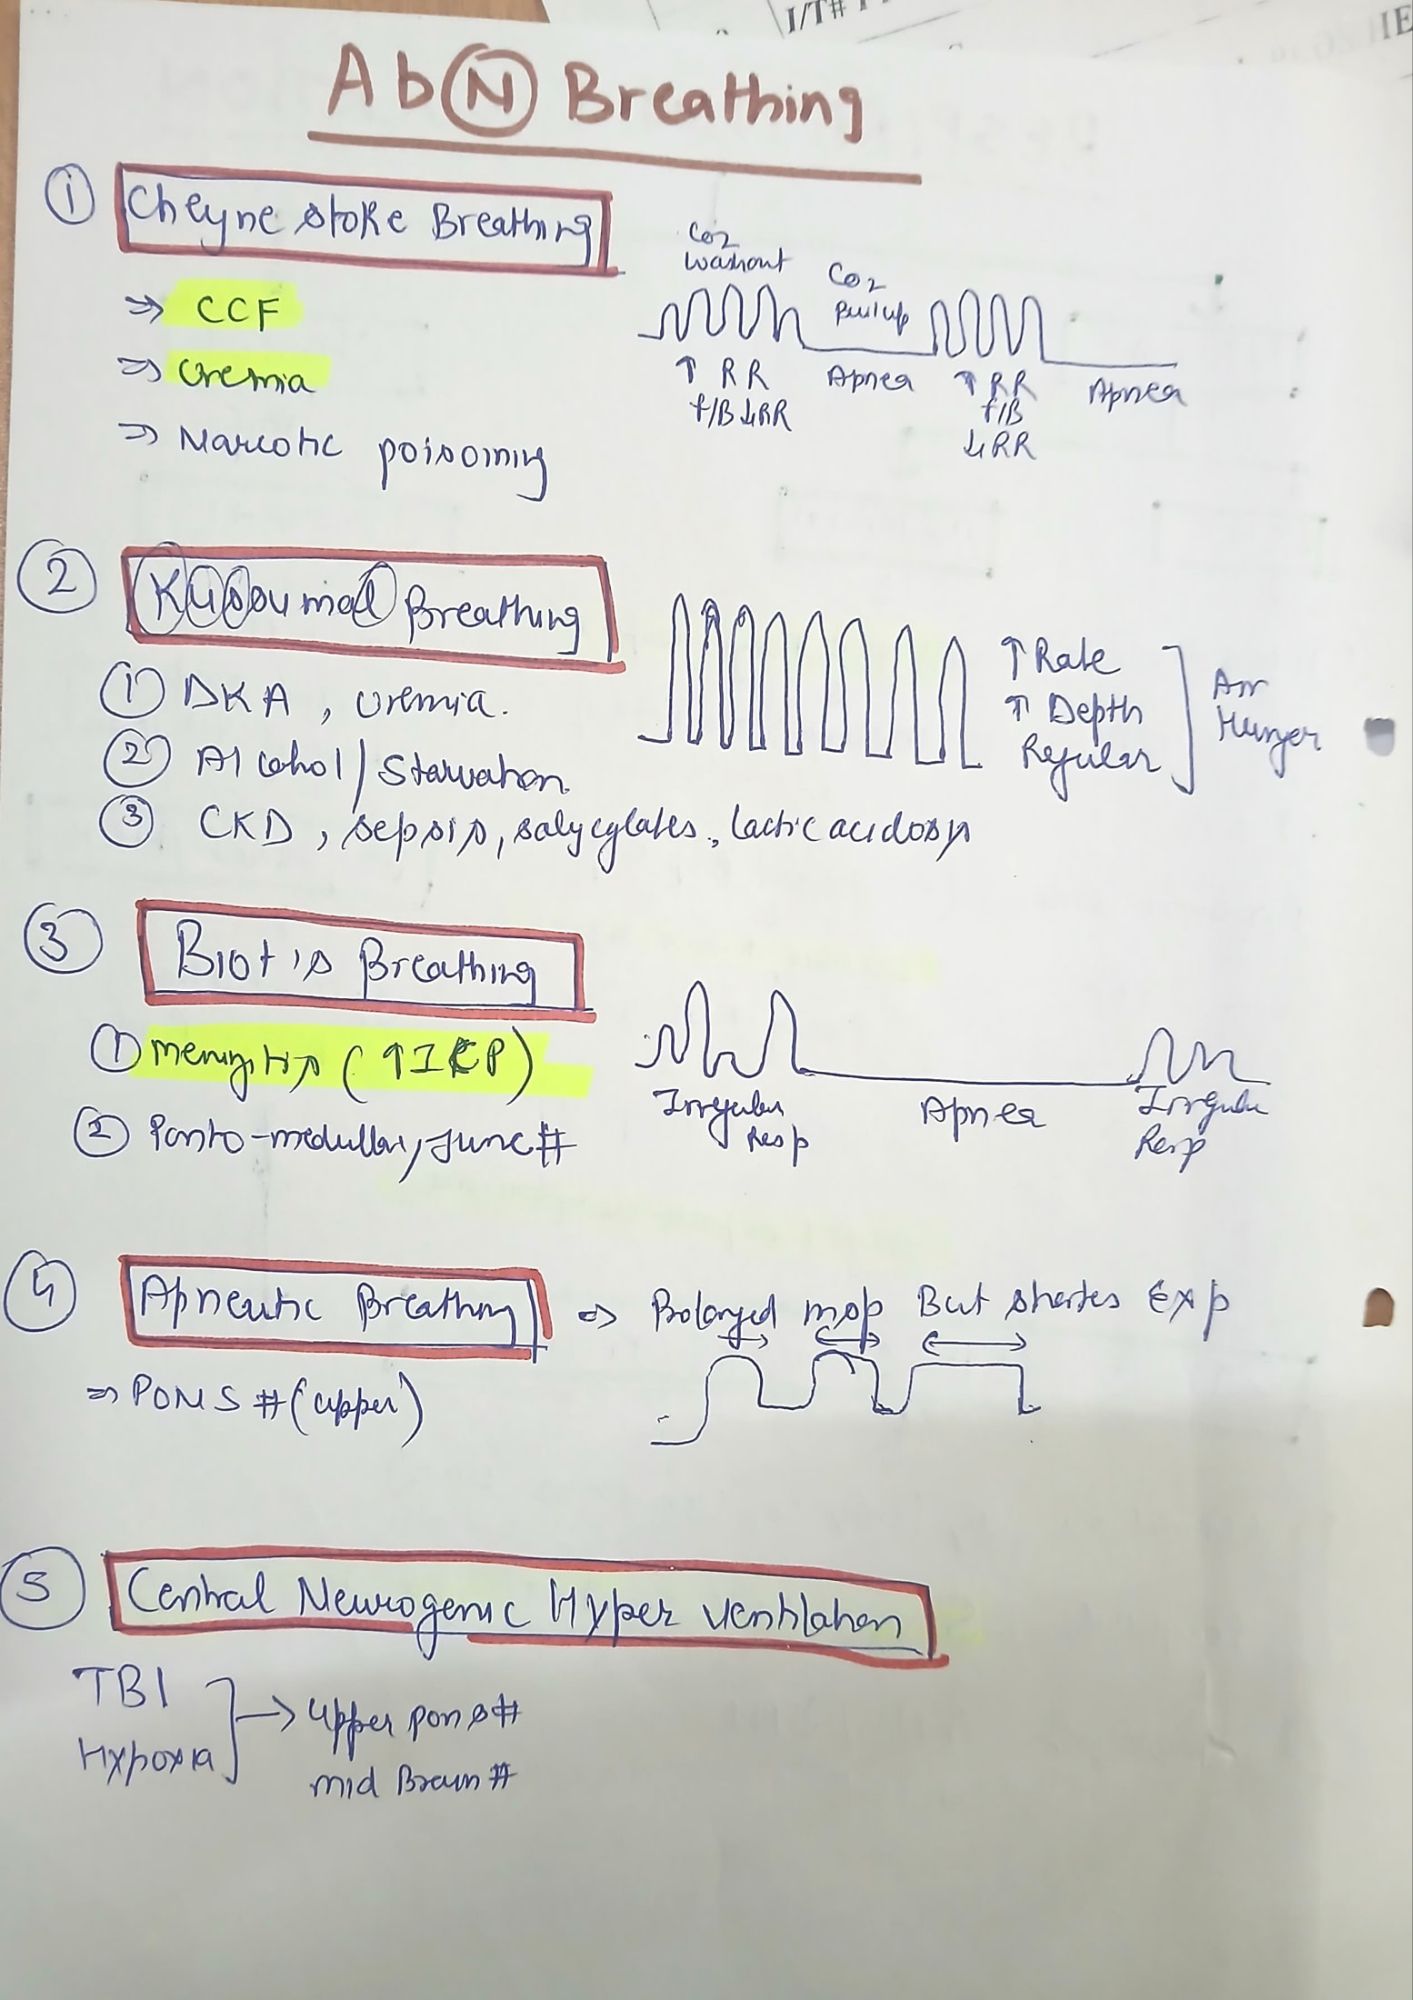 I/T#
IE
Ab(N) Breathing
① Cheyne stoke Breathing
⇒ CCF
⇒ Uremia
⇒ Narcotic poisoning
CO2
washout
CO2
Buildup
↑ RR
f/B ↓RR
Apnea
↑ RR
f/B
↓RR
Apnea
② Kussumal Breathing
① DKA, Uremia.
② Alcohol / Starvation
③ CKD, sepsis, salycylates, lactic acidosis
↑ Rate
↑ Depth
Regular
Air
Hunger
③ Biot's Breathing
① Meningitis (↑ICP)
② Ponto-medullary Junc #
Irregular
Resp
Apnea
Irregular
Resp
4 Apneutic Breathing ⇒ Prolonged insp But shortes Exp
⇒ PONS # (upper)
5 Central Neurogenic Hyper ventilation
TBI
Hypoxia
→ Upper pons #
mid Brain #